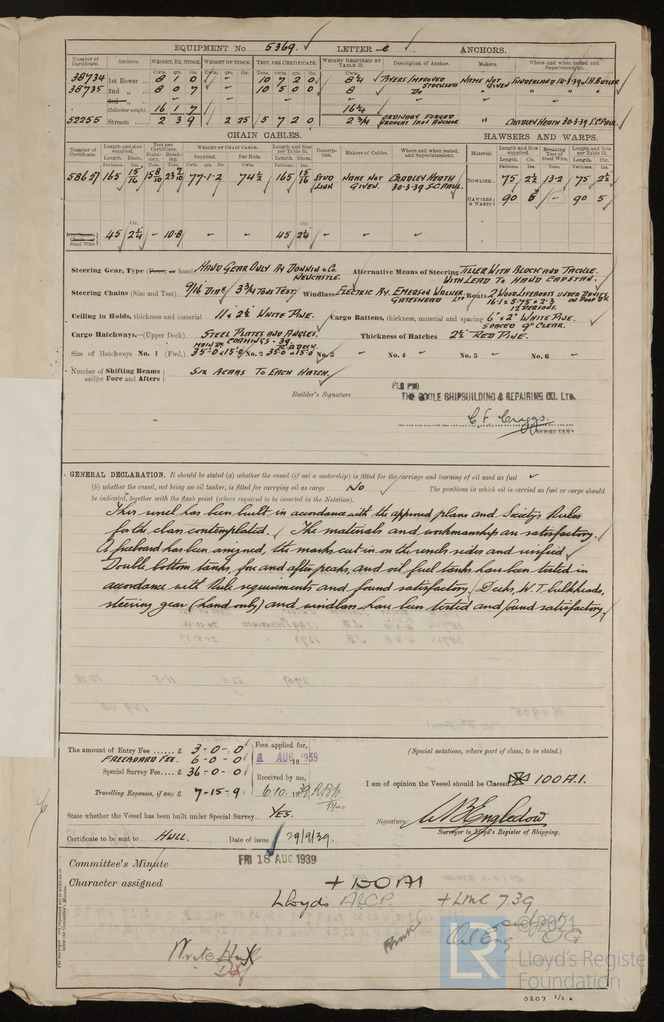 EQUIPMENT No 5369. LETTER c. ANCHORS.
Number of Certificate. Anchors. WEIGHT, EX. STOCK. WEIGHT OF STOCK. TEST, PER CERTIFICATE. WEIGHT REQUIRED BY TABLE 31. Description of Anchor. Makers. Where and when tested and Superintendent.
38734 1st Bower 8 1 0 - 10 7 2 0 8 1/4 BYERS IMPROVED STOCKLESS NAME NOT GIVEN SUNDERLAND 14-3-39 J.H.BUTLER
38735 2nd " 8 0 7 - 10 5 0 0 8 DO
3rd "
Collective weight. 16 1 7 16 1/4
52255 Stream 2 3 9 2 25 5 7 2 0 2 3/4 ORDINARY FORGED WROUGHT IRON ANCHOR " CRADLEY HEATH 30-3-39 S.C.PAUL.
CHAIN CABLES. HAWSERS AND WARPS.
Number of Certificate. Length and size supplied. Test per Certificate. WEIGHT OF CHAIN CABLE. Length and size per Table 31. Description. Makers of Cables. Where and when tested, and Superintendent. Material. Length and Size supplied. Breaking Test of Steel Wire. Length and Size per Table 31.
58627 165 15/16 15 8/10 23 7/10 77-1-2 74 1/2 165 15/16 STUD LINK NAME NOT GIVEN. CRADLEY HEATH 30-3-39 S.C.PAUL. TOWLINE 75 2 1/2 13-2 75 2 1/2
HAWSERS & WARPS 90 5 - 90 5
Steel Wire 45 2 1/4 - 10-8 45 2 1/4
Steering Gear, Type (Power, or hand) HAND GEAR ONLY BY DONKIN & Co. NEWCASTLE. Alternative Means of Steering TILLER WITH BLOCK AND TACKLE. WITH LEAD TO HAND CAPSTAN.
Steering Chains (Size and Test) 9/16" DIAR (3 3/4 TONS TEST) Windlass ELECTRIC BY. EMERSON WALKER LTD GATESHEAD Boats 2 WOOD LIFEBOATS UNDER DAVITS 16-1 x 5-75 x 2-3 12 PERSONS.
Ceiling in Holds, thickness and material 11" x 2 1/2" WHITE PINE. Cargo Battens, thickness, material and spacing 6" x 2" WHITE PINE. SPACED 9" CLEAR.
Cargo Hatchways.—(Upper Deck) STEEL PLATES AND ANGLES. Thickness of Hatches 2 1/2" RED PINE.
Size of Hatchways No. 1 (Fwd.) 35-0 x 15-0 No. 2 35-0 x 15-0 No. 3 - No. 4 - No. 5 - No. 6 -
Number of Shifting Beams and/or Fore and Afters SIX BEAMS TO EACH HATCH.
PER PRO
Builder's Signature THE GOOLE SHIPBUILDING & REPAIRING CO. LTD.
SECRETARY
GENERAL DECLARATION. It should be stated (a) whether the vessel (if not a motorship) is fitted for the carriage and burning of oil used as fuel
(b) whether the vessel, not being an oil tanker, is fitted for carrying oil as cargo No The positions in which oil is carried as fuel or cargo should
be indicated, together with the flash point (where required to be inserted in the Notation).
This vessel has been built in accordance with the approved plans and Society's Rules
for the class contemplated. The materials and workmanship are satisfactory.
A freeboard has been assigned, the marks cut in on the vessels sides and verified
Double bottom tanks, fore and after peaks, and oil fuel tanks have been tested in
accordance with Rule requirements and found satisfactory. Decks, W.T. bulkheads,
steering gear (hand only) and windlass have been tested and found satisfactory.
The amount of Entry Fee £ 3-0-0
FREEBOARD FEE. 6-0-0
Special Survey Fee £ 36-0-0
Travelling Expenses, if any £ 7-15-9
Fees applied for,
1 AUG 1939
Received by me,
6 10. 1939
(Special notations, where part of class, to be stated.)
I am of opinion the Vessel should be Classed ✠ 100A.1.
State whether the Vessel has been built under Special Survey YES.
Signature
Surveyor to Lloyd's Register of Shipping.
Certificate to be sent to HULL. Date of issue 29/9/39.
Committee's Minute FRI 18 AUG 1939
Character assigned + 100 A1
Lloyds A&CP. + LMC 7.39
Oil Eng OG
Write Hull
©2021
Lloyd's Register
Foundation
0207 2/2